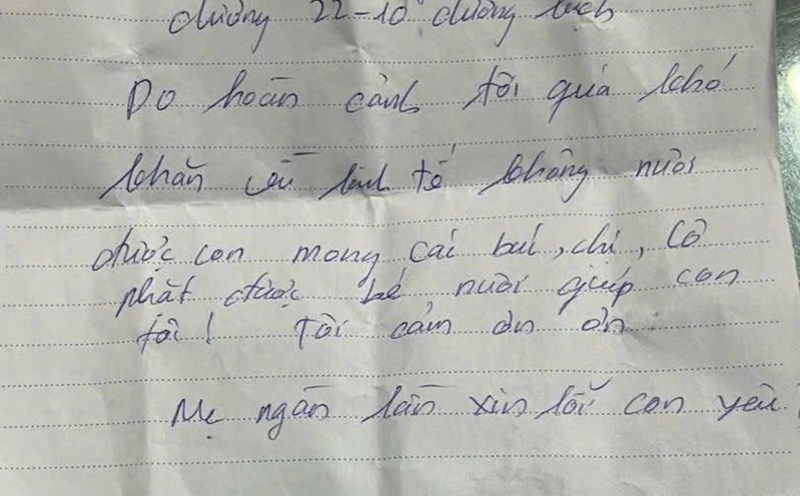 dương 22-10 dương lịch
Do hoàn cảnh tôi quá khó
khăn về kinh tế không nuôi
được con mong các bác, chị, cô
nhặt được bé nuôi giúp con
tôi! Tôi cảm ơn ơn
Mẹ ngàn lần xin lỗi con yêu